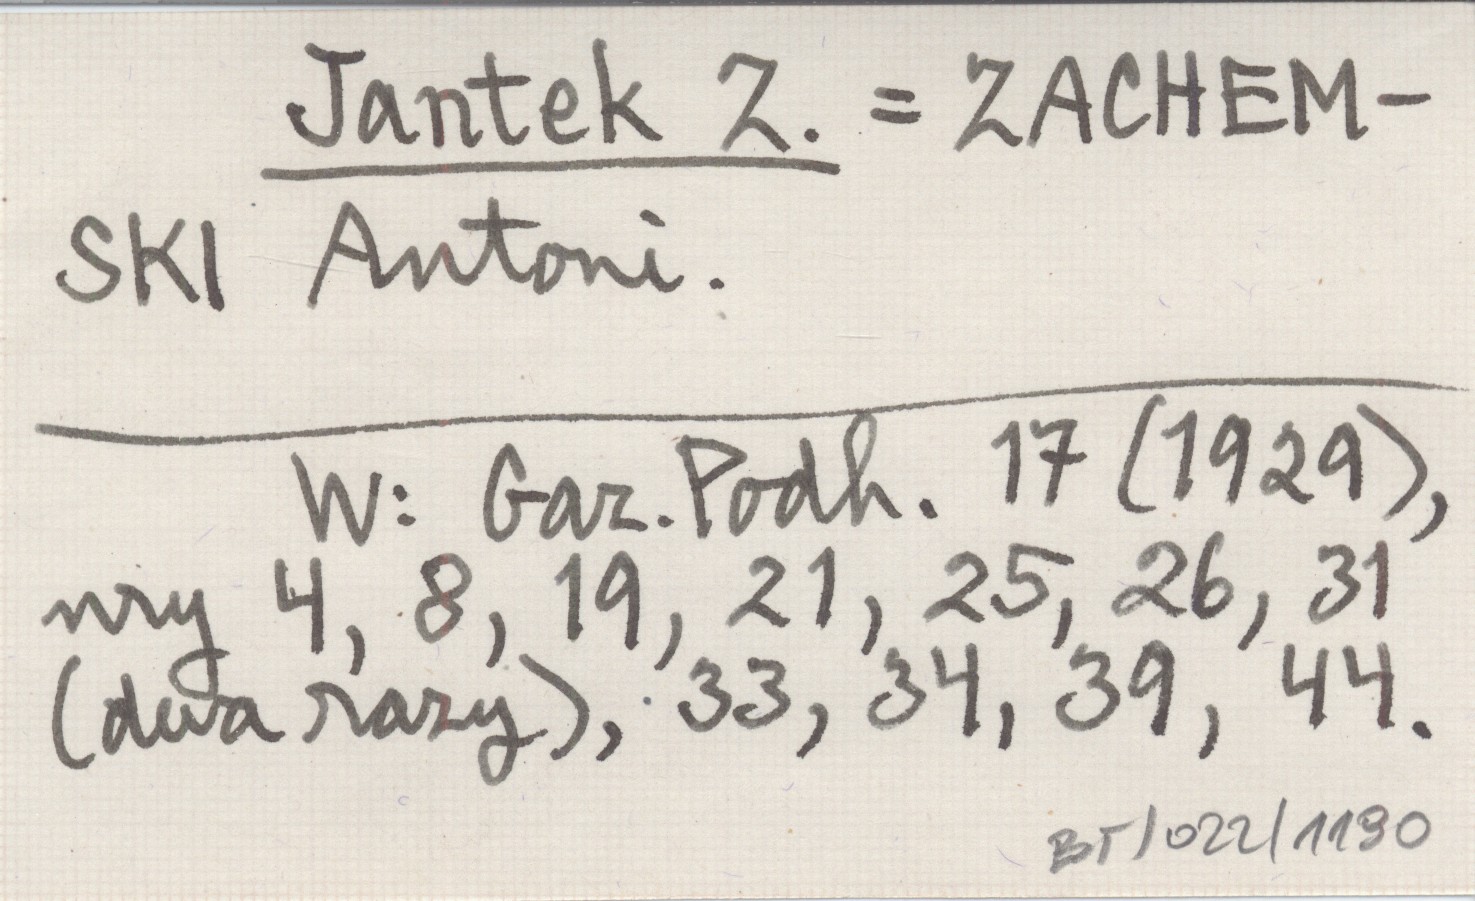 Jantek Z. = ZACHEM-
SKI Antoni.
W: Gaz. Podh. 17 (1929),
nry 4, 8, 19, 21, 25, 26, 31
(dwa razy), 33, 34, 39, 44.
BT/022/1190